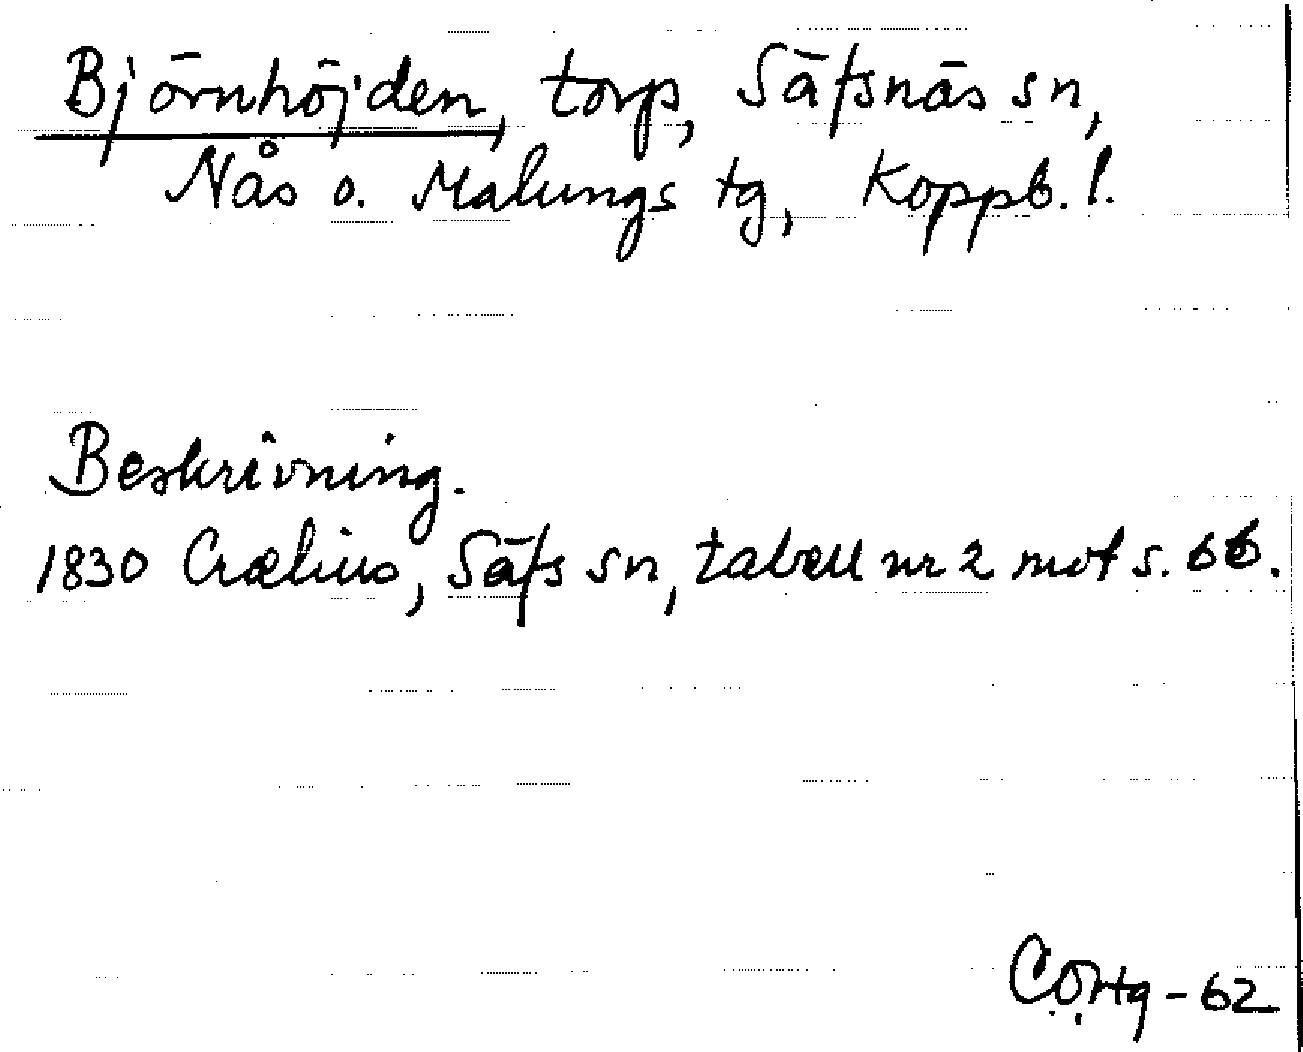 Björnhöjden, torp, Säfsnäs sn,
Nås o. Malungs tg, Koppb. l.
Beskrivning.
1830 Crælius, Säfs sn, tabell nr 2 mot s. 66.
- 62